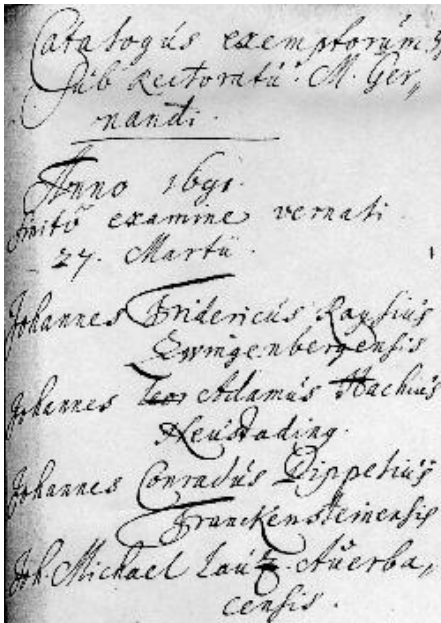 Catalogus exemptorum
sub Rectoratu M. Ger„
nandi.
Anno 1691.
finito examine vernali
27. Martii.
Johannes Fridericus Raysius
Zwingenbergensis
Johannes Adamus Hachius
Neustading.
Johannes Conradus Dippelius
Franckensteinensis
Joh. Michael Lautz. Auerba„
censis.